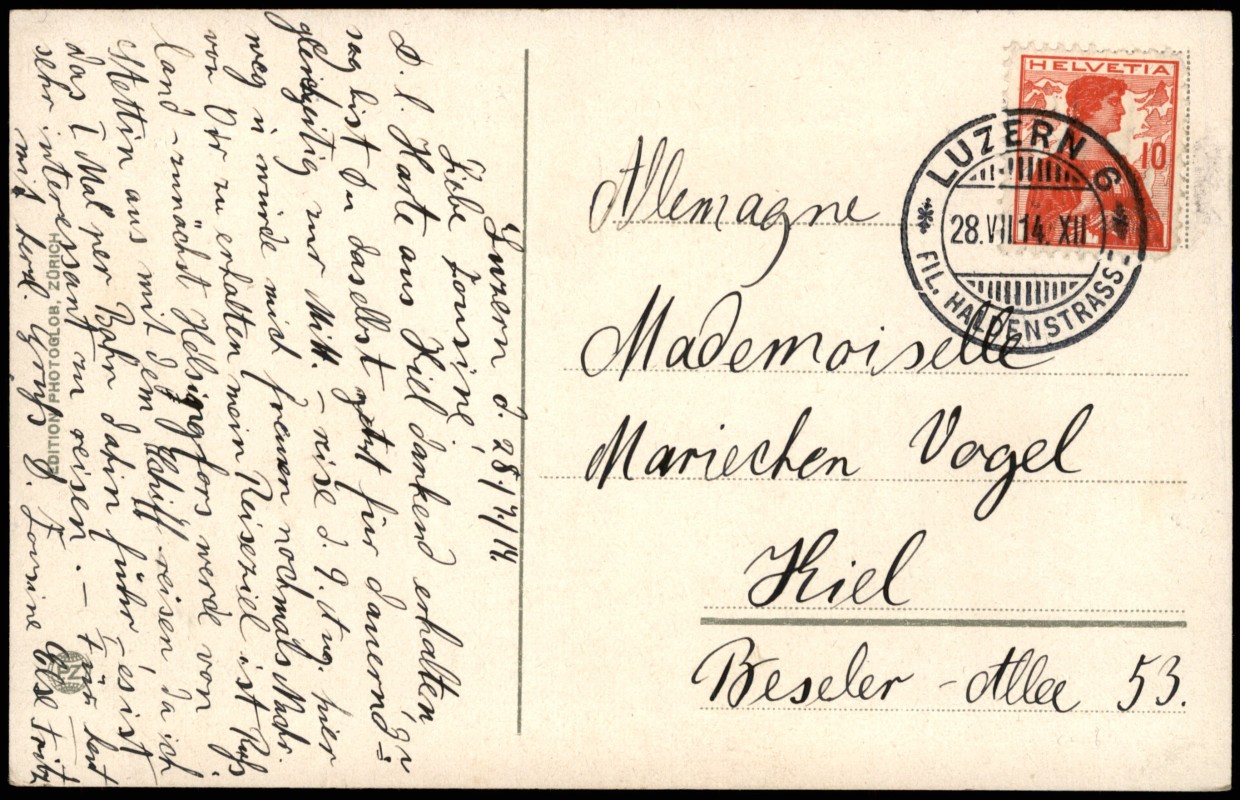 Luzern d. 28/7/14.
Liebe Cousine!
D. l. Karte aus Kiel dankend erhalten,
sag bist Du daselbst jetzt für dauernd =
gleichzeitig zur Mitt. – reise d. 9. Aug. hier
weg u würde mich freuen nochmals Nachr.
von Dir zu erhalten mein Reiseziel ist Russ
land – zunächst Helsingfors werde von
Stettin aus mit dem Schiff reisen da ich
das 1 Mal per Bahn dahin fuhr es ist
sehr interessant zu reisen. – Für heut
mit herzl. Gruss D. Cousine Else
EDITION PHOTOGLOB, ZÜRICH
HELVETIA
10
LUZERN 6
28.VII 14. XII
FIL. HALDENSTRASS
Allemagne
Mademoiselle
Mariechen Vogel
Kiel
Beseler - Allee 53.